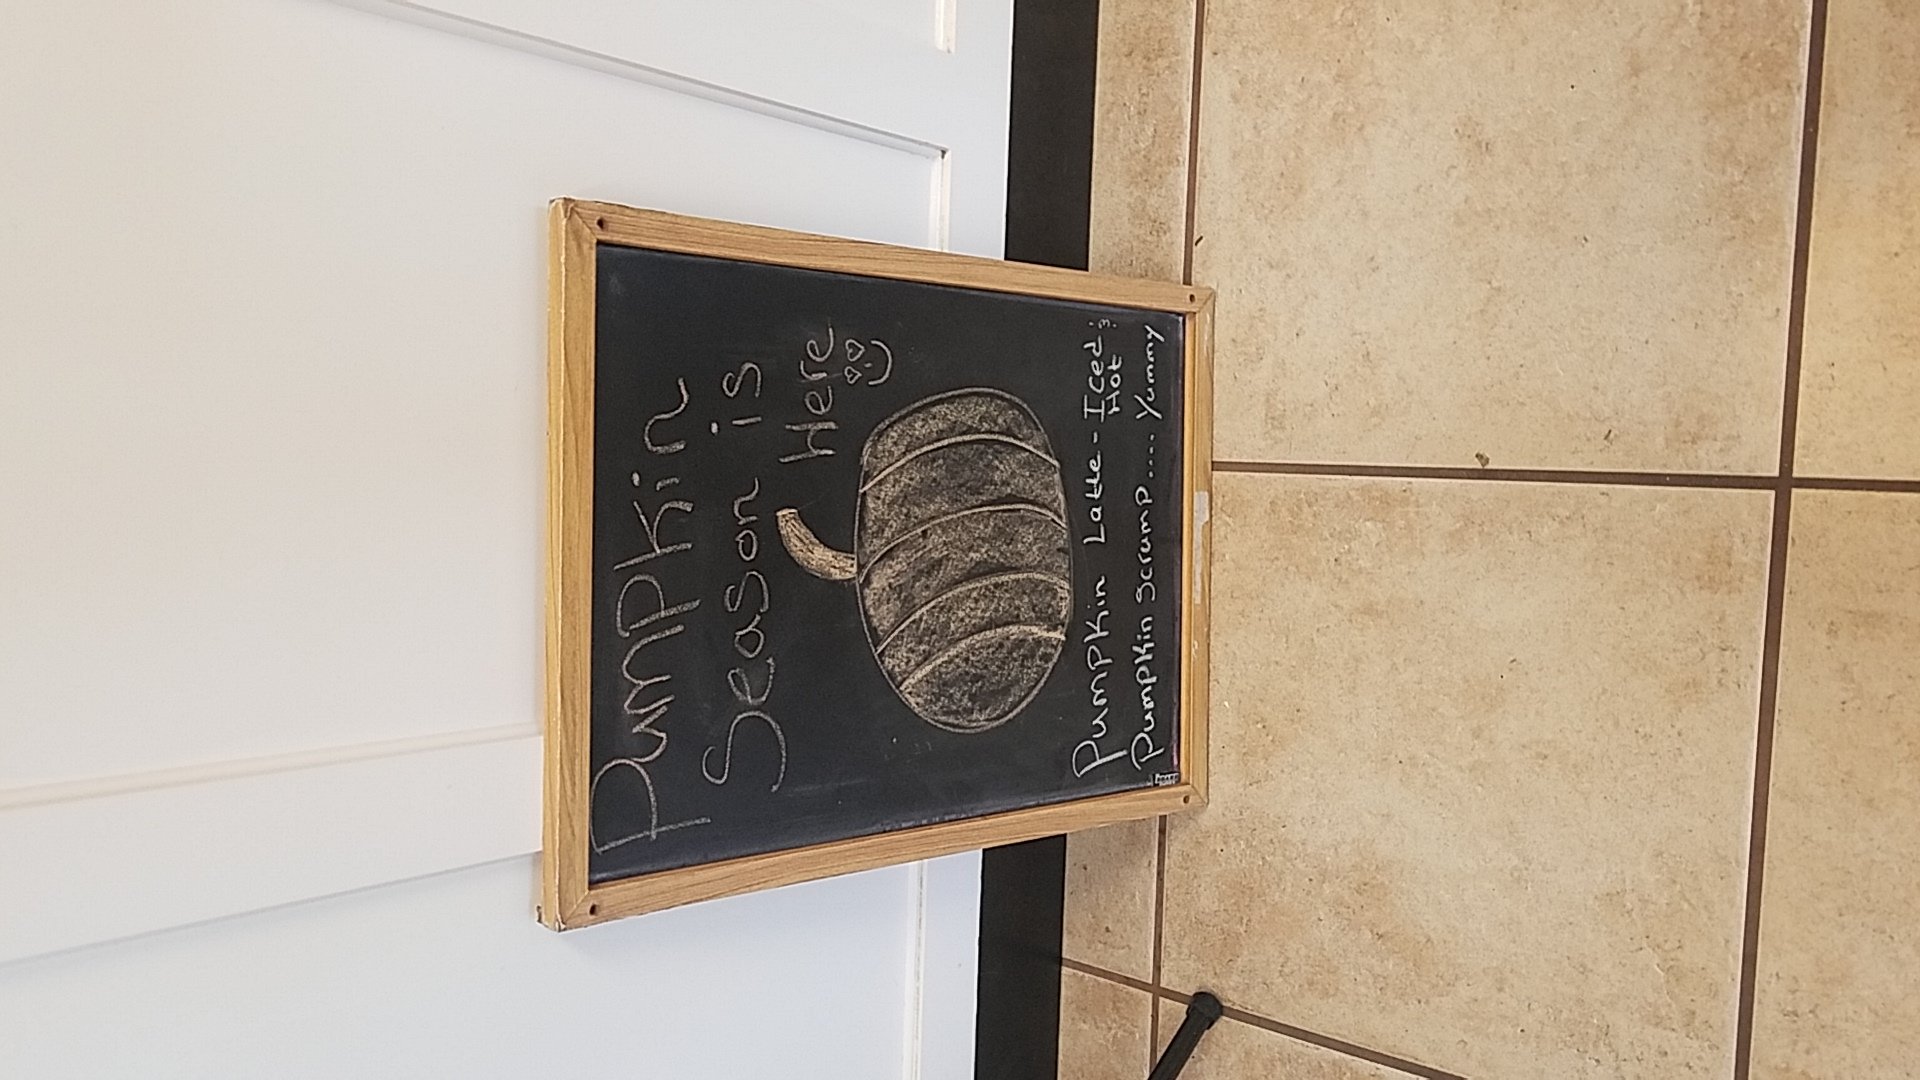 Pumpkin
Season is
Here
Pumpkin Latte - Iced &
Hot
Pumpkin Scrump..... Yummy